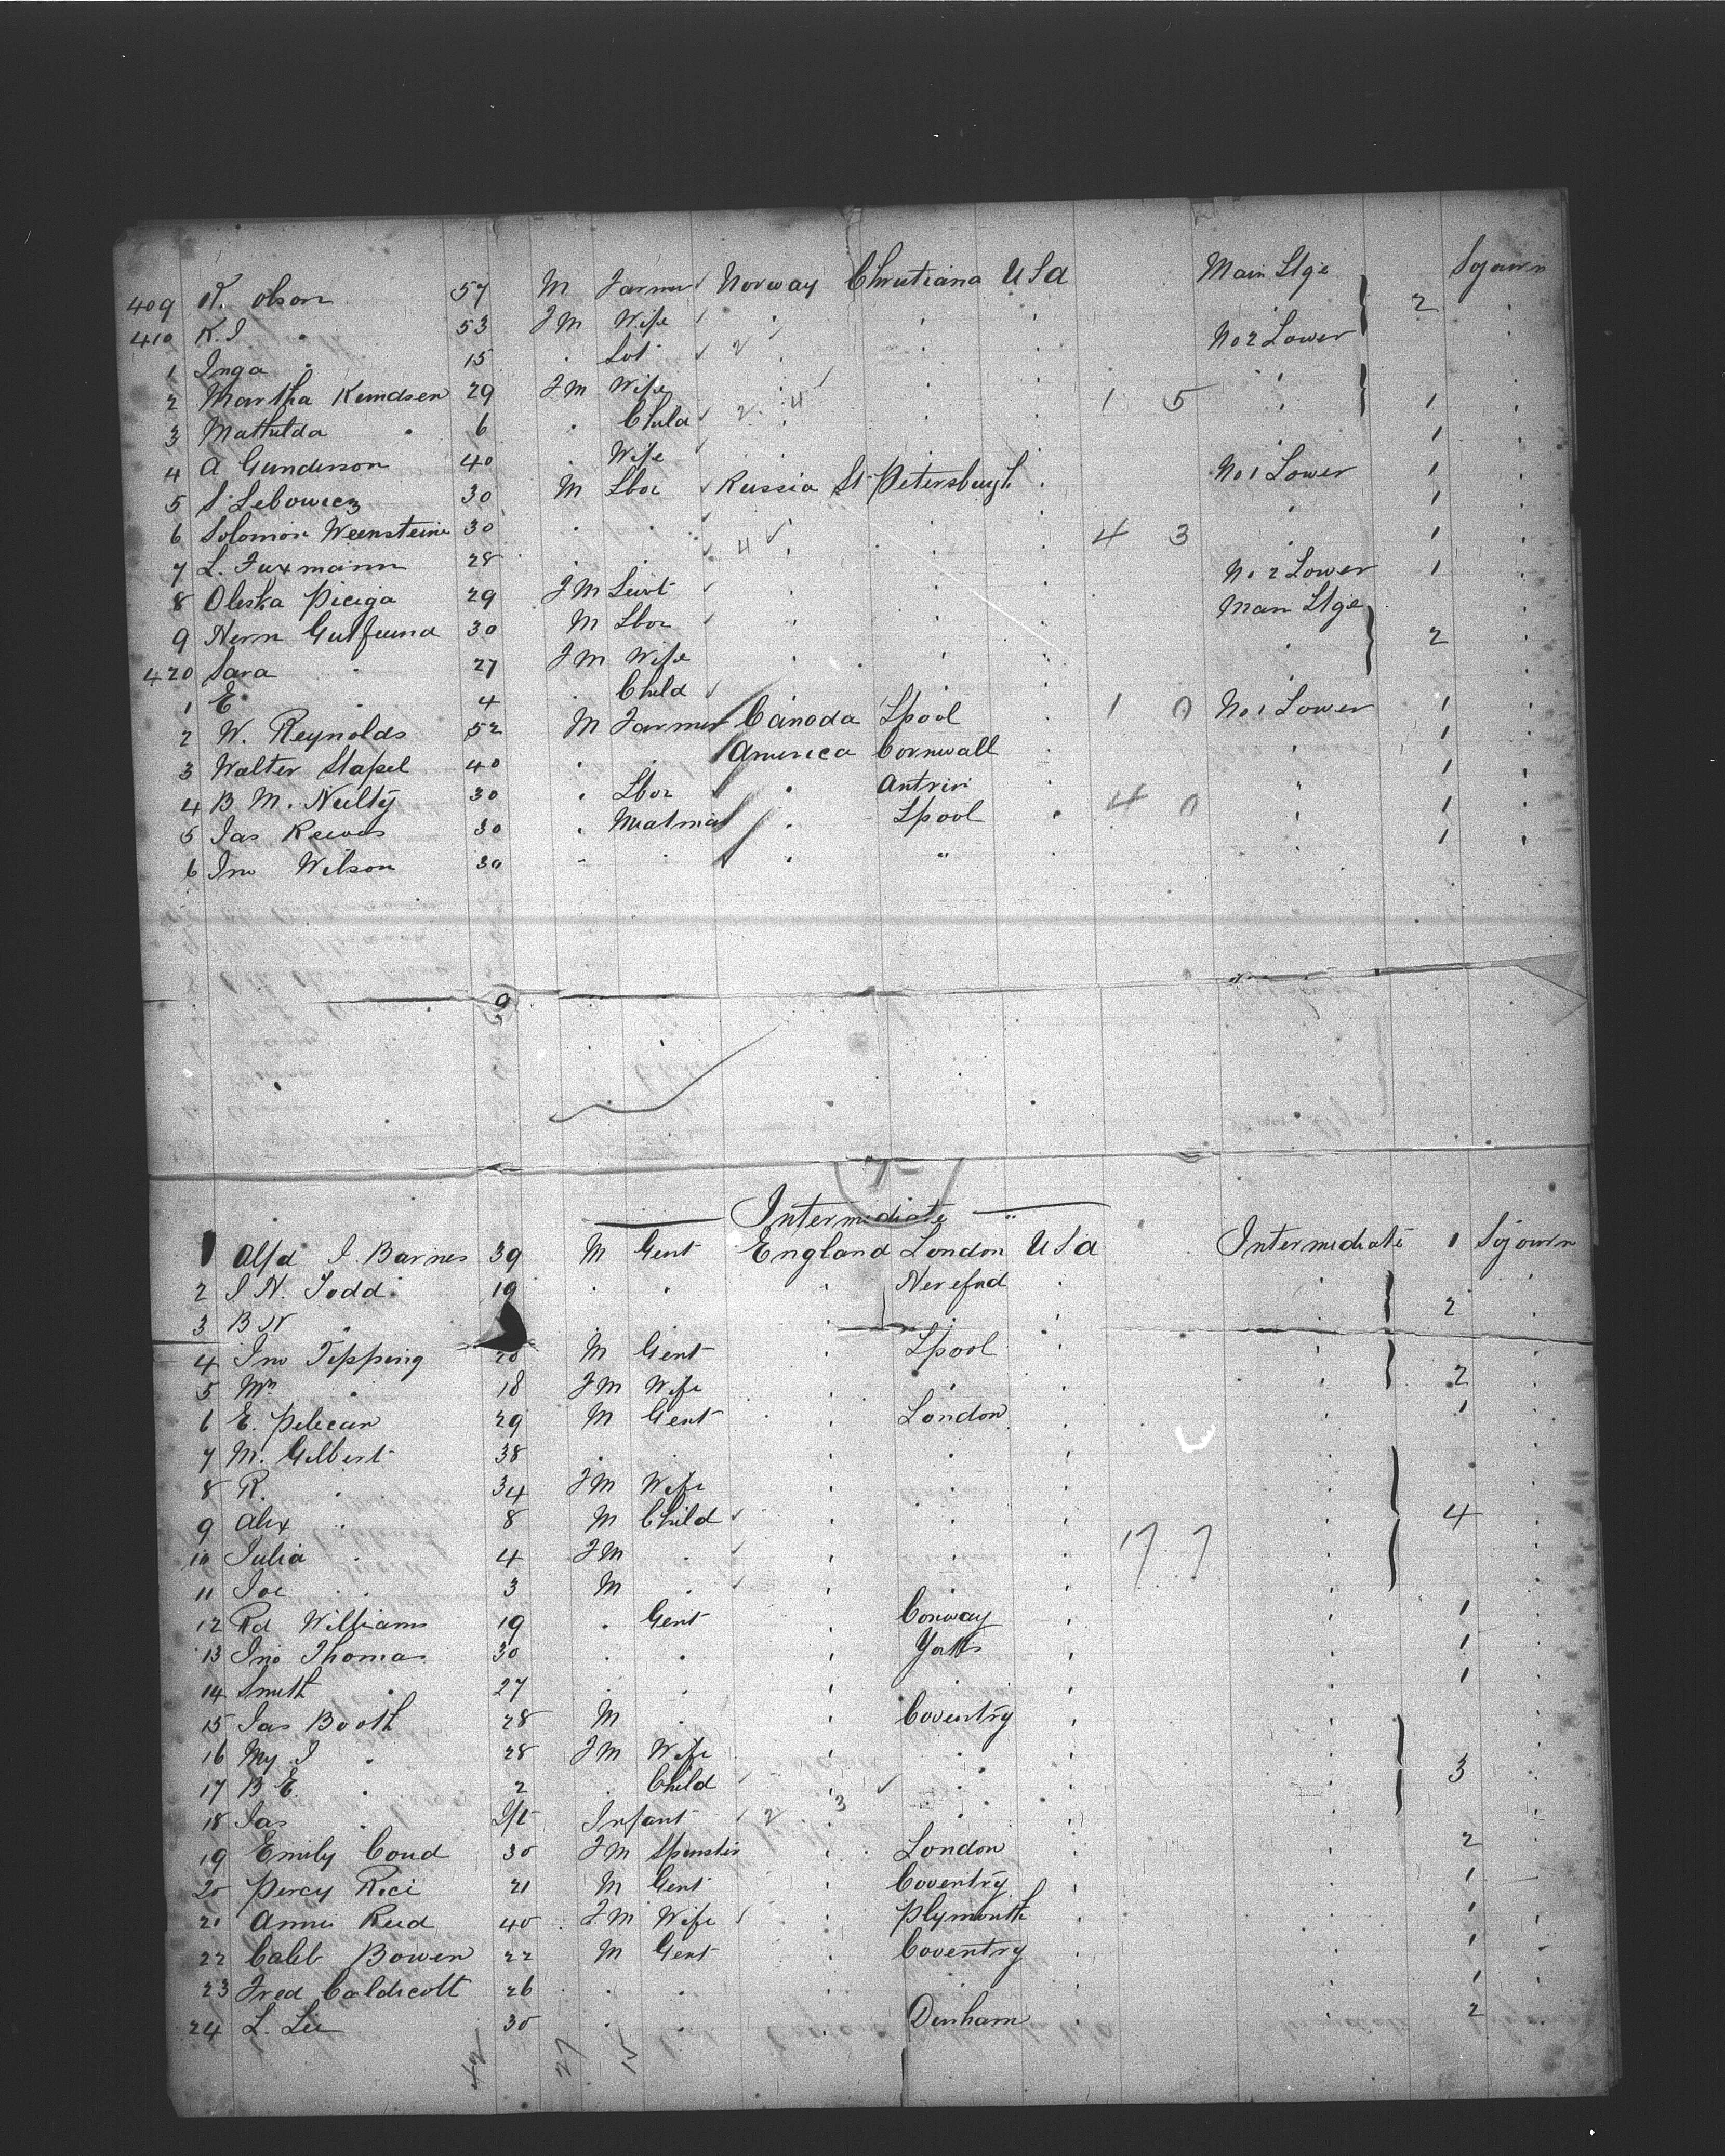 409 K. Olson 57 M Farmer Norway Christiana USA Main Stge Sojourn
410 K. I " 53 FM Wife " " " " 2 "
1 Inga " 15 " " " " No 2 Lower "
2 Martha Kundsen 29 FM Wife " " " "
3 Mathilda " 6 " Child 2 4 " " 1 5 " 1 "
4 A Gunderson 40 " Wife " " " 1 "
5 S. Lebowicz 30 M Lbor Russia St Petersburgh " No 1 Lower 1 "
6 Solomon Weensteine 30 " " " " " " 1 "
7 L. Fuxmann 28 " " 4 " " " 4 3 " 1 "
8 Oleska Piciga 29 FM " " " No 2 Lower 1 "
9 Herm Gutfreund 30 M Lbor " " " Main Stge
420 Sara " 27 FM Wife " " " " 2 "
1 E " 4 " Child " " " "
2 W. Reynolds 52 M Farmer Canoda Lpool " 1 0 No 1 Lower 1 "
3 Walter Stapel 40 " " America Cornwall " " 1 "
4 B M. Nulty 30 " Lbor " Antrim " 4 0 " 1 "
5 Jas Reeves 30 " " Lpool " " 1 "
6 Jno Wilson 30 " " " " " " 1 "
Intermediate
1 Alfd J. Barnes 39 M Gent England London USA Intermediate 1 Sojourn
2 J N. Todd 19 " " " Hereford " "
3 B N " " " " " 2 "
4 Jno Tipping 20 M Gent " Lpool " " "
5 Mrs " 18 FM Wife " " " " 2 "
6 E. Pelican 29 M Gent " London " " 1 "
7 M. Gilbert 38 " " " " " " "
8 R. " 34 FM Wife " " " " "
9 Alex " 8 M Child " " " " 4 "
10 Julia " 4 FM " " " " 17 7 " "
11 Joe " 3 M " " " " " "
12 Rd Williams 19 " Gent " Conway " " 1 "
13 Jno Thomas 30 " " " " " 1 "
14 Smith " 27 " " " " " " 1 "
15 Jas Booth 28 M " " Coventry " " "
16 My J " 28 FM Wife " " " " "
17 B E. " 2 " Child " " " " 3 "
18 Jas " Infant 2 3 " " " "
19 Emily Coud 30 FM Spinster " London " " 2 "
20 Percy Rici 21 M Gent " Coventry " " 1 "
21 Annie Reid 40 FM Wife " Plymouth " " 1 "
22 Caleb Bowen 22 M Gent " Coventry " " 1 "
23 Fred Caldicott 26 " " " " " " 1 "
24 L. Lee 30 " " " Denham " " 2 "
42 27 15